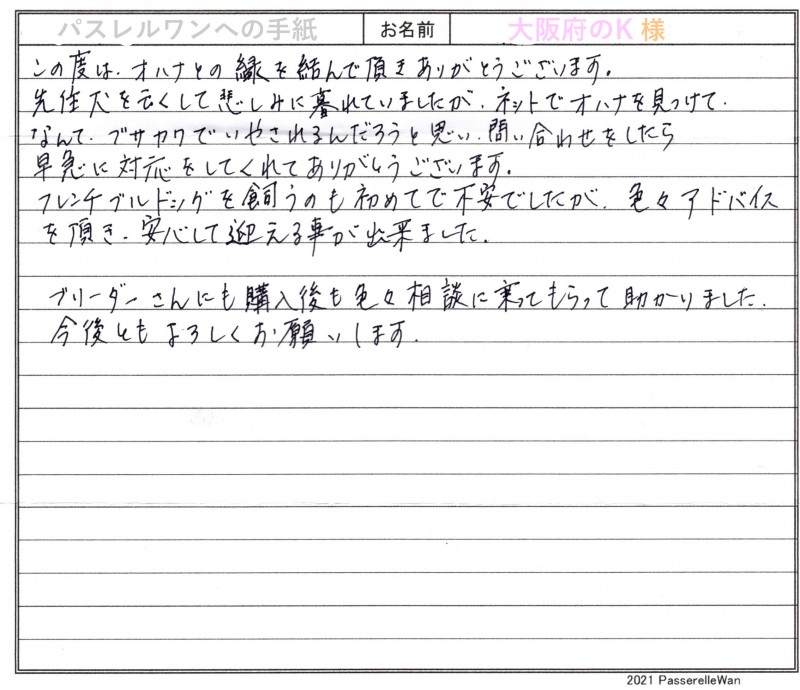 パスレルワンへの手紙 お名前 大阪府のK 様
この度は、オハナとの縁を結んで頂きありがとうございます。
先住犬を亡くして悲しみに暮れていましたが、ネットでオハナを見つけて、
なんて、ブサカワでいやされるんだろうと思い、問い合わせをしたら
早急に対応をしてくれてありがとうございます。
フレンチブルドッグを飼うのも初めてで不安でしたが、色々アドバイス
を頂き、安心して迎える事が出来ました。
ブリーダーさんにも購入後も色々相談に乗ってもらって助かりました。
今後ともよろしくお願いします。
2021 PasserelleWan